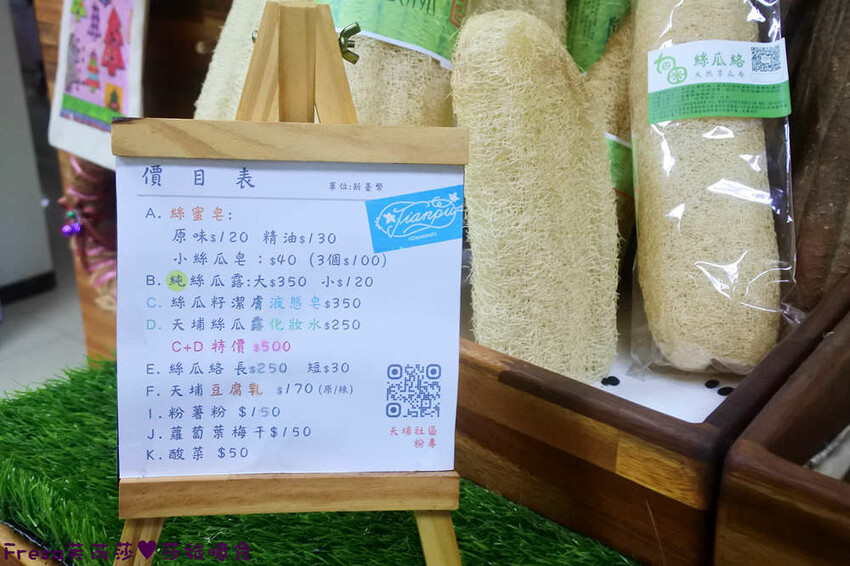 價目表
單位:新臺幣
Tianpu
A. 絲蜜皂:
原味$120 精油$130
小絲瓜皂：$40 (3個$100)
B. 純絲瓜露:大$350 小$120
C. 絲瓜籽潔膚液態皂$350
D. 天埔絲瓜露化妝水$250
C+D 特價 $500
E. 絲瓜絡 長$250 短$30
F. 天埔豆腐乳 $170 (原/辣)
I. 粉薯粉 $150
J. 蘿蔔葉梅干$150
K. 酸菜 $50
天埔社區
粉專
絲瓜絡
天然菜瓜布